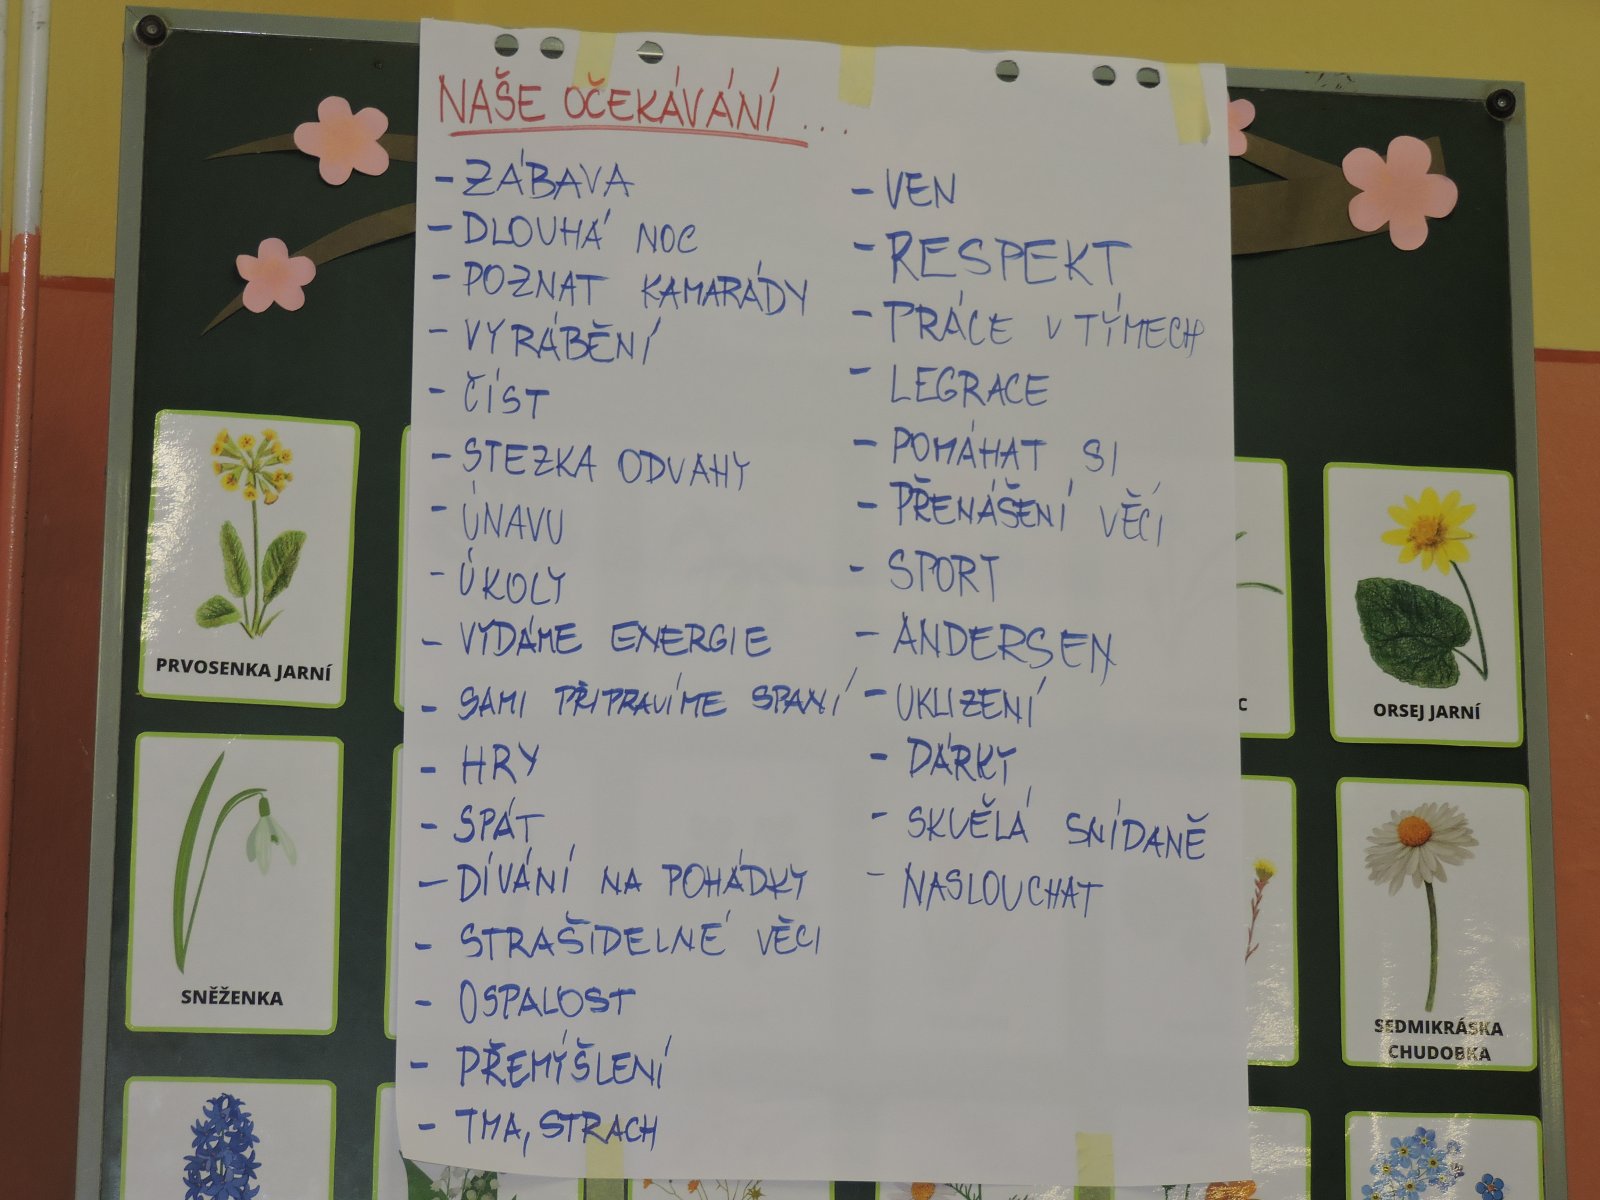 NAŠE OČEKÁVÁNÍ...
- ZÁBAVA
- DLOUHÁ NOC
- POZNAT KAMARÁDY
- VYRÁBĚNÍ
- ČÍST
- STEZKA ODVAHY
- ÚNAVU
- ÚKOLY
- VYDÁME ENERGIE
- SAMI PŘIPRAVÍME SPANÍ
- HRY
- SPÁT
- DÍVÁNÍ NA POHÁDKY
- STRAŠIDELNÉ VĚCI
- OSPALOST
- PŘEMÝŠLENÍ
- TMA, STRACH
- VEN
- RESPEKT
- PRÁCE V TÝMECH
- LEGRACE
- POMÁHAT SI
- PŘENÁŠENÍ VĚCÍ
- SPORT
- ANDERSEN
- UKLIZENÍ
- DÁRKY
- SKVĚLÁ SNÍDANĚ
- NASLOUCHAT
PRVOSENKA JARNÍ
SNĚŽENKA
C
ORSEJ JARNÍ
SEDMIKRÁSKA
CHUDOBKA